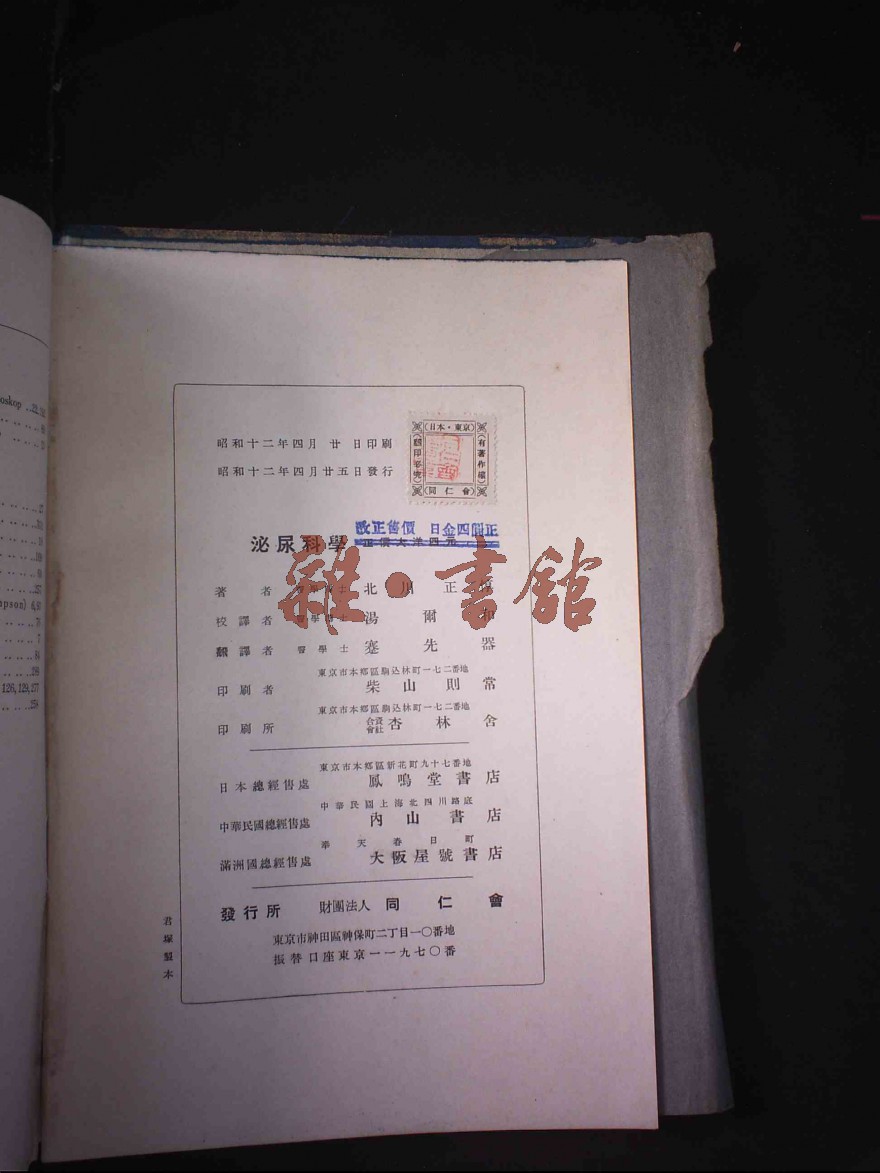 oskop
126,129,177
昭和十二年四月廿日印刷
昭和十二年四月廿五日發行
日本・東京
有著作權
會仁同
泌尿科學
改正售價 日金四圓正
正價大洋四元
著者 醫學博士 北川正惇
校譯者 醫學博士 湯爾和
翻譯者 醫學士 蹇先器
東京市本鄉區駒込林町一七二番地
印刷者 柴山則常
東京市本鄉區駒込林町一七二番地
印刷所 合資會社 杏林舍
東京市本鄉區新花町九十七番地
日本總經售處 鳳鳴堂書店
中華民國上海北四川路底
中華民國總經售處 內山書店
奉天春日町
滿洲國總經售處 大阪屋號書店
發行所 財團法人 同仁會
東京市神田區神保町二丁目一〇番地
振替口座東京一一九七〇番
君塚製本
雜・書館